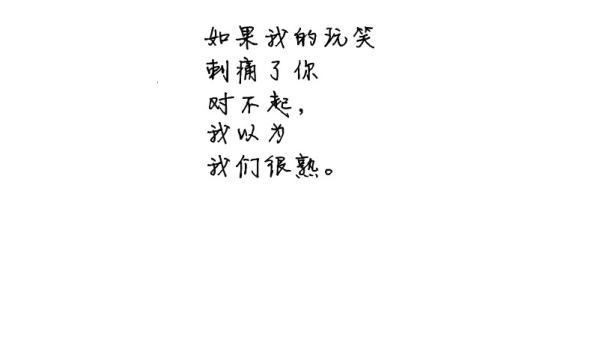 如果我的玩笑
刺痛了你
对不起,
我以为
我们很熟。